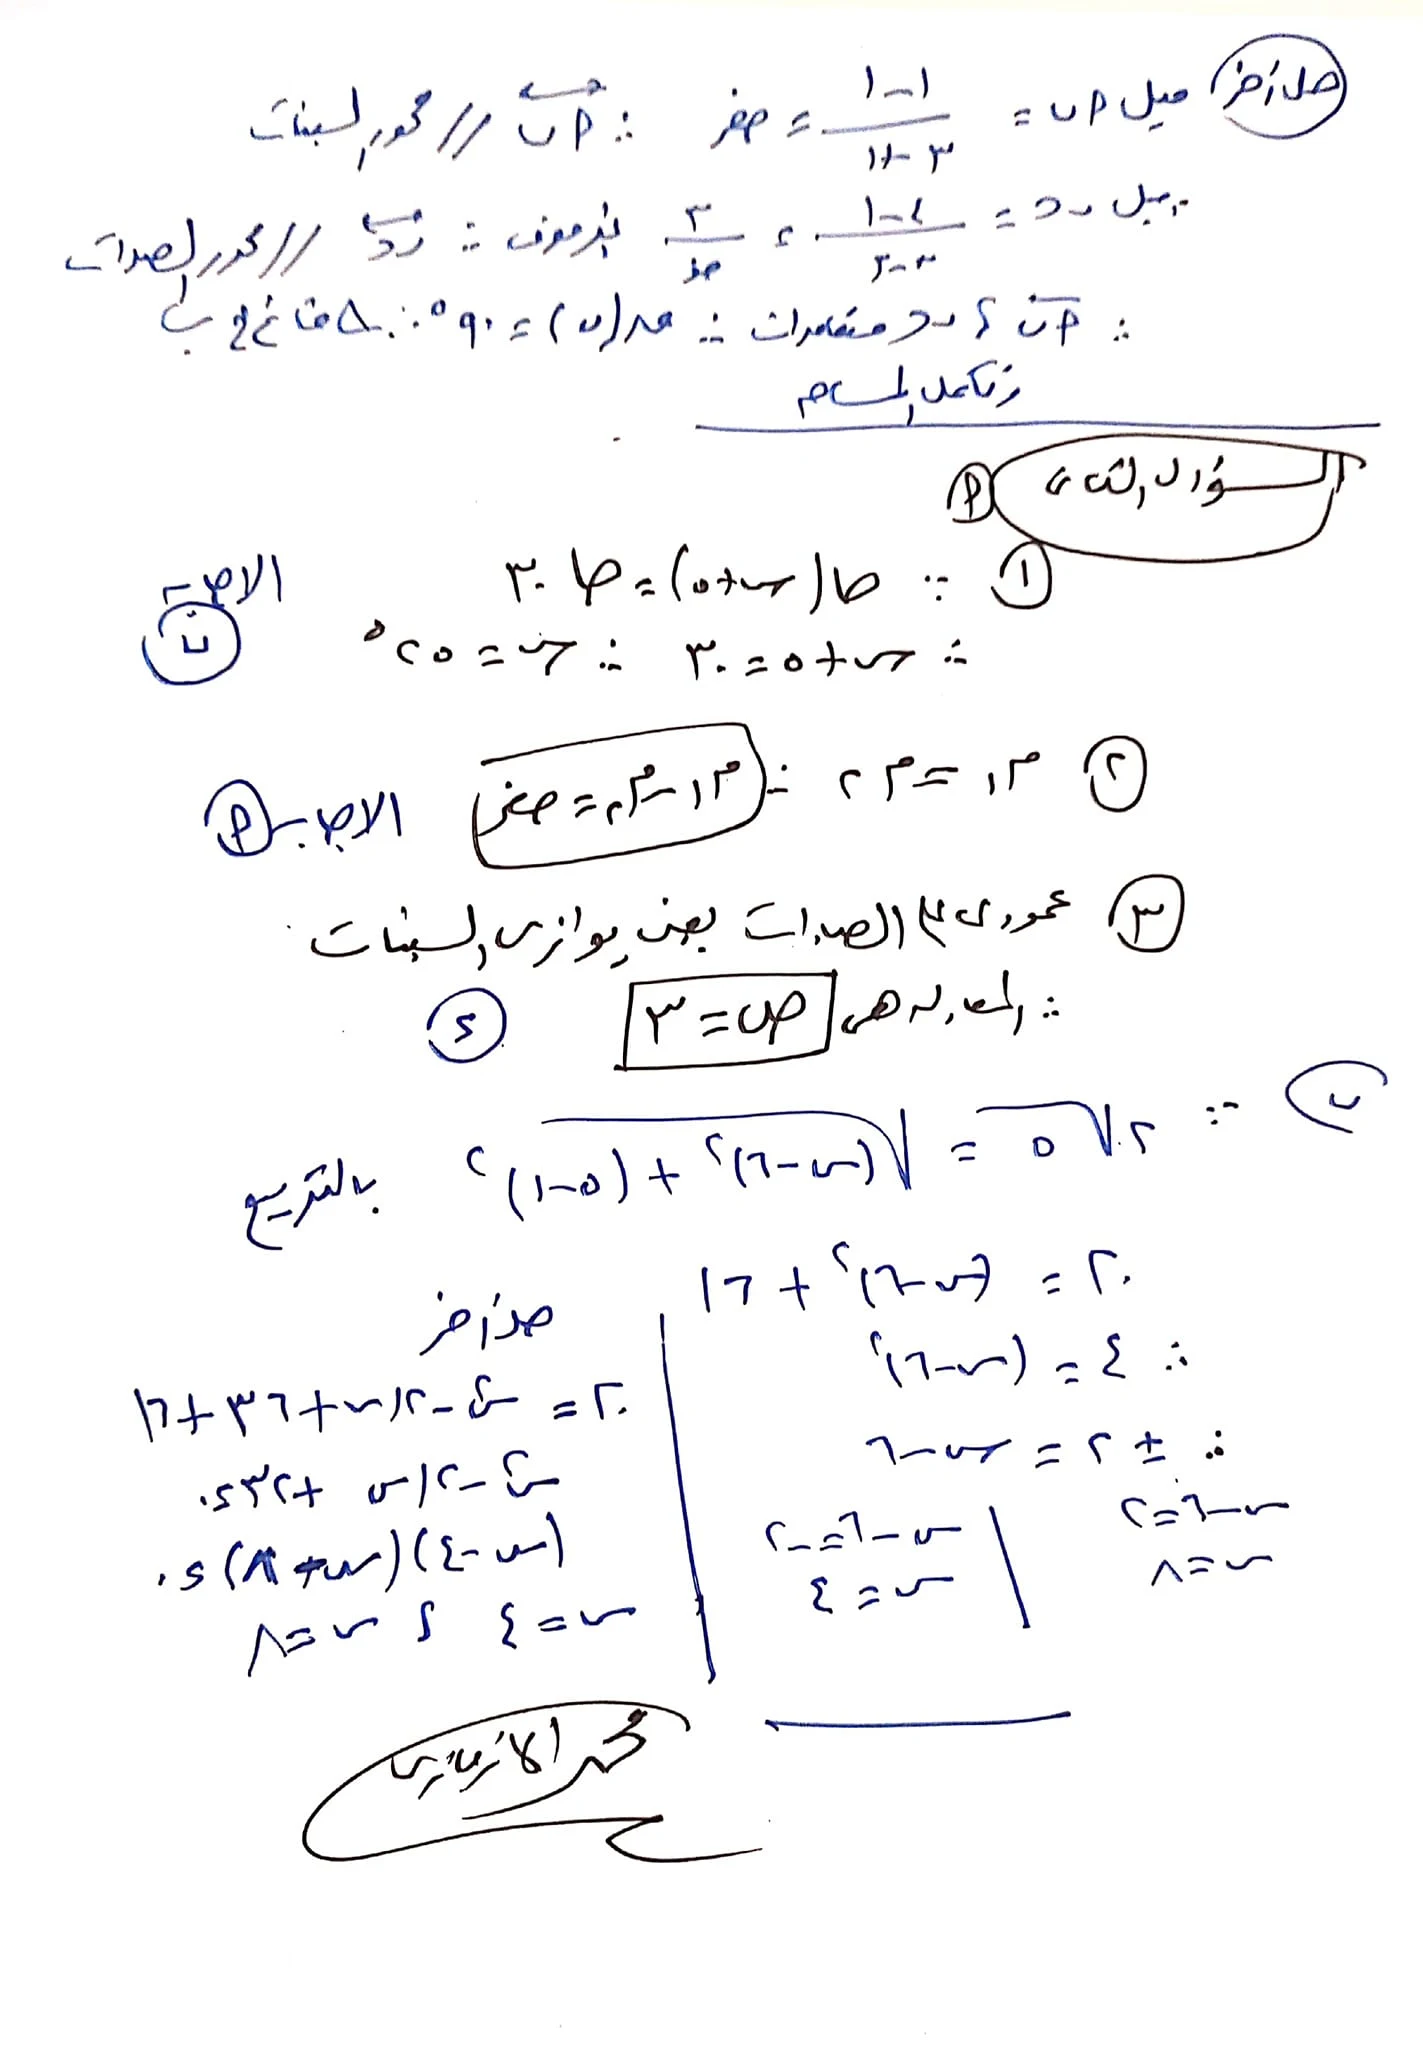 حل آخر ميل ا ب = (١ - ١) / (٣ + ١) = صفر ∴ ا ب // محور السينات
ميل ب ج = (٤ - ١) / (٣ - ٣) = ٣ / صفر غير معرف ∴ ب ج // محور الصادات
∴ ا ب ، ب ج متعامدان ∴ ق(ب) = ٩٠° ∴ △ قائم في ب
ونكمل المساحة
السؤال الثانى ا
١ ∵ طا(س + ٥) = طا ٣٠
∴ س + ٥ = ٣٠ ∴ س = ٢٥° الاجابة ب
٢ م١ = م٢ ∴ م١ - م٢ = صفر الاجابة ا
٣ عمودى على الصادات يعنى يوازى السينات
∴ المعادلة هى ص = ٣ د
ب ∵ ٢√٥ = √((س - ٦)² + (٥ - ١)²) بالتربيع
٢٠ = (س - ٦)² + ١٦
∴ ٤ = (س - ٦)²
∴ ± ٢ = س - ٦
س - ٦ = ٢ | س - ٦ = -٢
س = ٨ | س = ٤
حل آخر
٢٠ = س² - ١٢س + ٣٦ + ١٦
س² - ١٢س + ٣٢ = ٠
(س - ٤)(س - ٨) = ٠
س = ٤ ، س = ٨
محمد